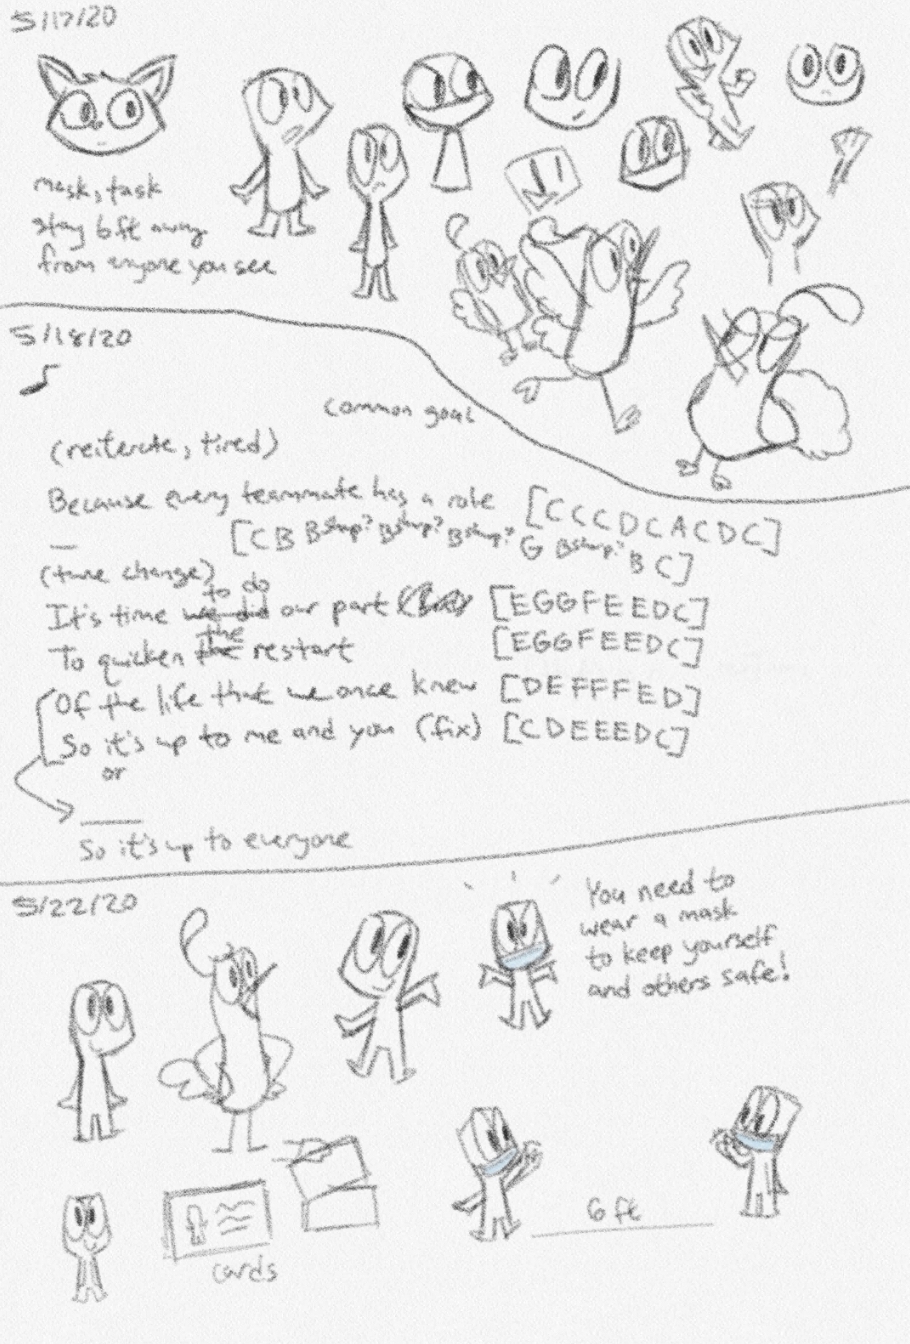 5/17/20
mask, task
stay 6ft away
from anyone you see
5/18/20
common goal
(reiterate, tired)
Because every teammate has a role [CCCDCACDC]
[CB Bsharp? Bsharp? Bsharp? G Bsharp? B C]
(tune change)
to do
It's time we did our part [EGGFEEDC]
the
To quicken the restart [EGGFEEDC]
Of the life that we once knew [DEFFFED]
So it's up to me and you (fix) [CDEEEDC]
or
So it's up to everyone
5/22/20
You need to
wear a mask
to keep yourself
and others safe!
6 ft
cards